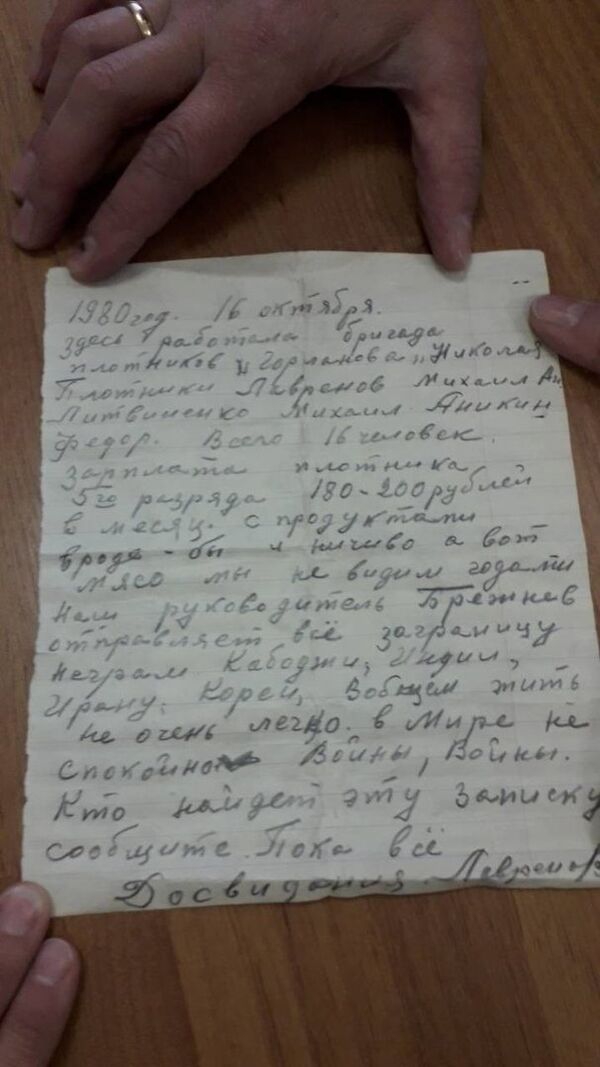 1980 год. 16 октября.
Здесь работала бригада
плотников „Горланова„ Николая
Плотники Лавренов Михаил Ан
Литвиненко Михаил. Аникин
Федор. Всего 16 человек.
Зарплата плотника
5го разряда 180-200 рублей
в месяц. с продуктами
вроде-бы и ничиво а вот
мясо мы не видим годами
наш руководитель Брежнев
отправляет всё заграницу
неграм. Кабоджи, Индии,
Ирану, Кореи, Вобщем жить
не очень легко. в Мире не
спокойно Войны, Войны.
Кто найдет эту записку
сообщите. Пока всё
Досвидания. Лавренов